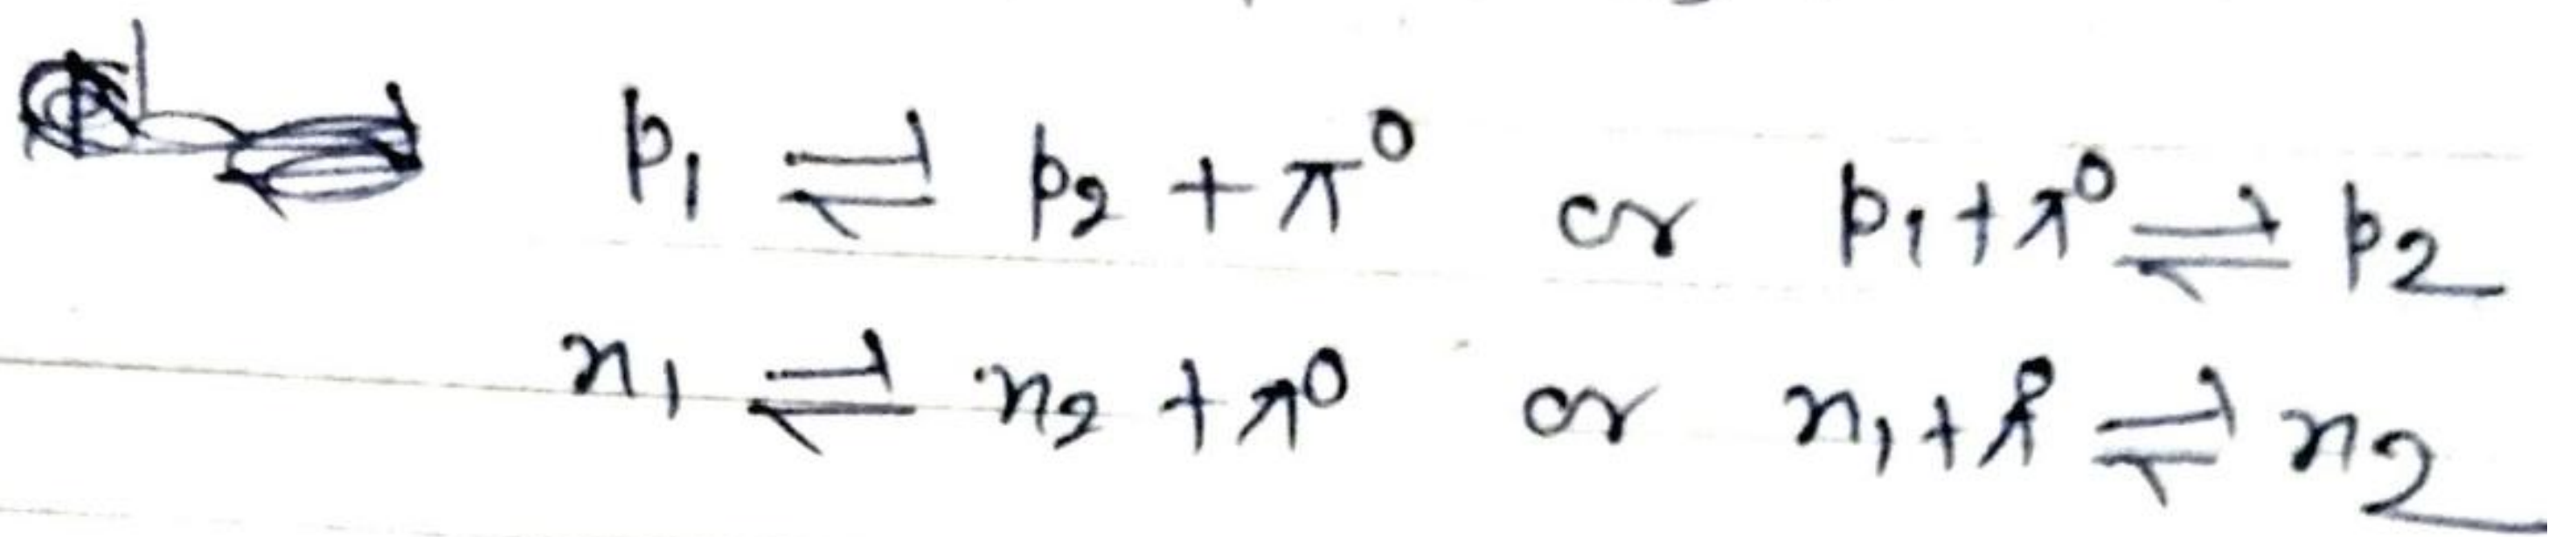 p₁ ⇌ p₂ + π⁰ or p₁ + π⁰ ⇌ p₂
n₁ ⇌ n₂ + π⁰ or n₁ + π⁰ ⇌ n₂